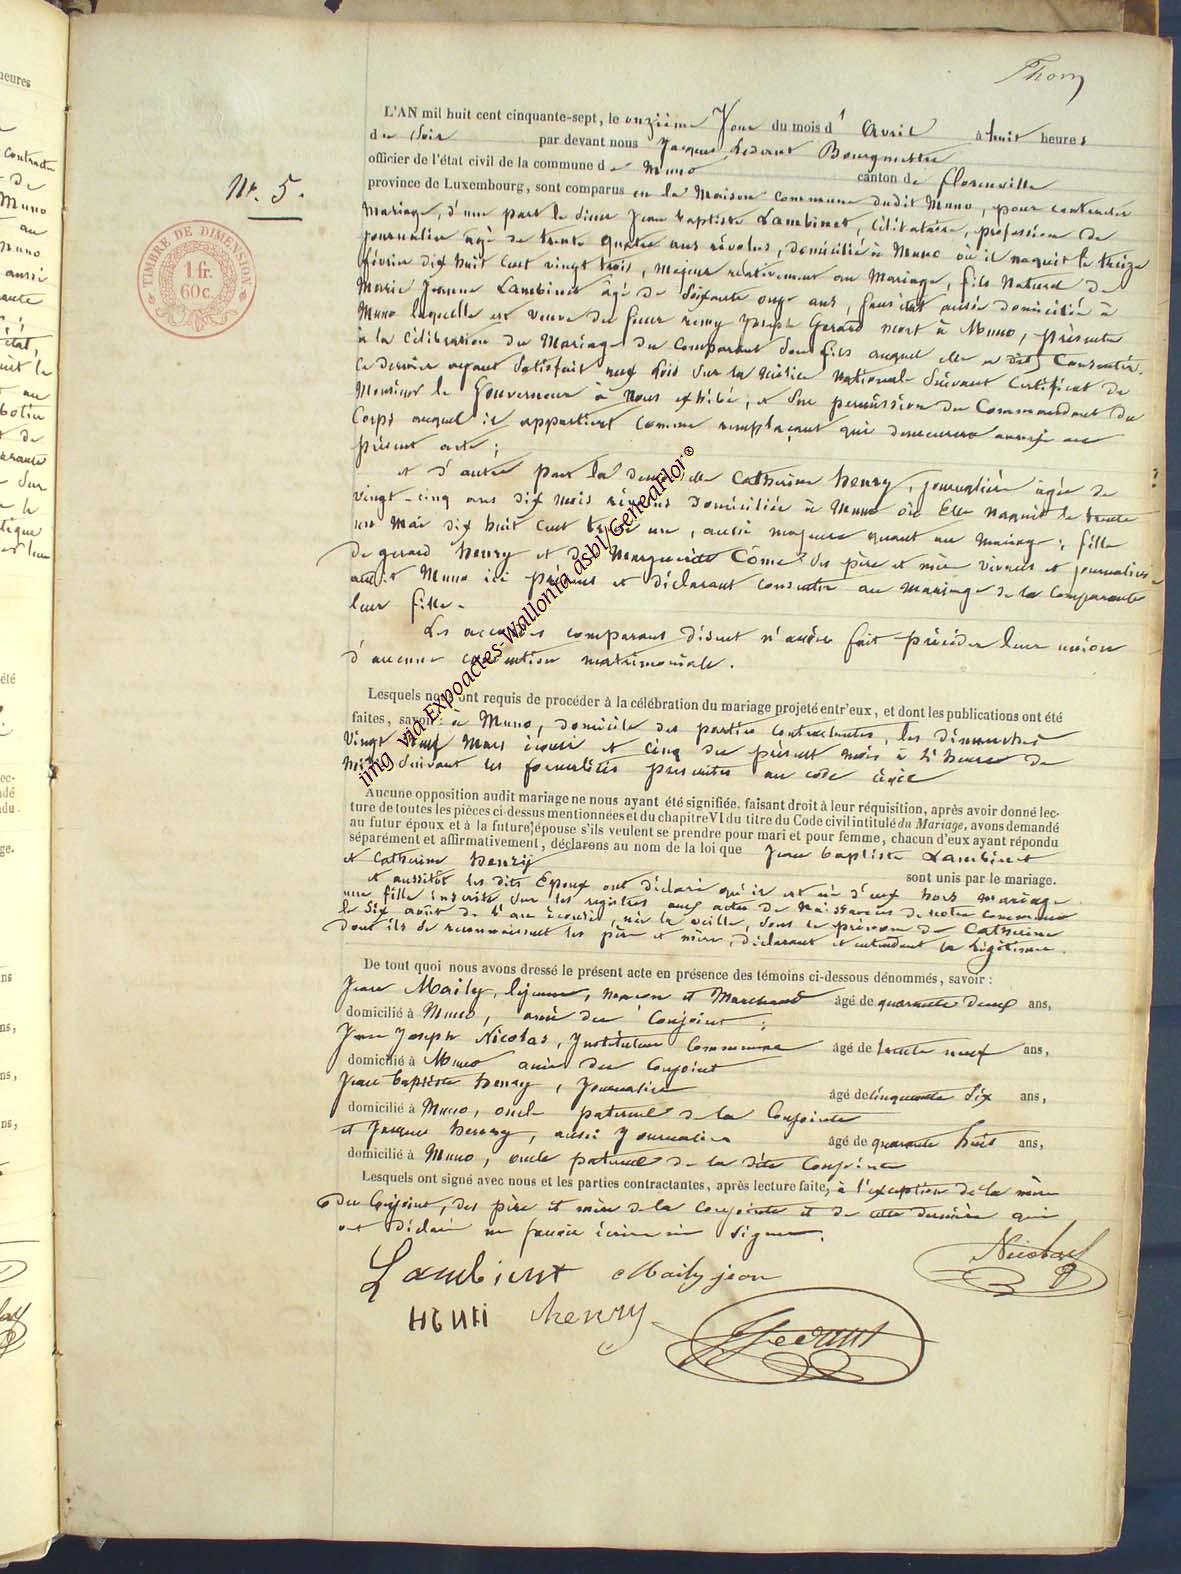 Thom
Nr. 5.
TIMBRE DE DIMENSION
1 fr.
60 c.
L'AN mil huit cent cinquante-sept, le onzième Jour du mois d'Avril à huit heures
du Soir par devant nous Jacques Bourgmestre
officier de l'état civil de la commune de Muno canton de florenville
province de Luxembourg, sont comparus en la Maison Commune dudit Muno, pour contracter
Mariage, d'une part le sieur Jean baptiste Lambinet, Célibataire, profession de
Journalier agé de trente quatre ans révolus, domicilié à Muno où il naquit le treize
février dix huit cent vingt trois, majeur relativement au Mariage, fils Naturel de
Marie Jeanne Lambinet âgé de Soixante onze ans, aussi domiciliée à
Muno laquelle est veuve du sieur remy Joseph Gerard mort à Muno, présente
à la Célébration du Mariage du Comparant son fils auquel elle a dit Consentir.
Ce dernier ayant Satisfait aux Lois Sur la Milice Nationale Suivant Certificat de
Monsieur le Gouverneur à Nous exhibé, et une permission du Commandant du
Corps auquel il appartient comme remplaçant qui demeurera annexé au
présent acte;
et d'autre part la demoiselle Catherine henry, journalière âgée de
vingt-cinq ans dix mois révolus domiciliée à Muno où Elle naquit le trente
un Mai dix huit cent trente un, aussi majeure quant au Mariage; fille
de gerard henry et de Marguerite Côme, ses père et mère vivants et journaliers
audit Muno ici présents et déclarant consentir au Mariage de la Comparante
leur fille.
Les comparans disent n'avoir fait précéder leur union
d'aucune convention matrimoniale.
Lesquels nous ont requis de procéder à la célébration du mariage projeté entr'eux, et dont les publications ont été
faites, savoir: à Muno, domicile des parties contractantes, les dimanches
Vingt neuf Mars écoulé et Cinq du présent mois à l'heure de
Midi Suivant les formalités prescrites au code civil
Aucune opposition audit mariage ne nous ayant été signifiée, faisant droit à leur réquisition, après avoir donné lec-
ture de toutes les pièces ci-dessus mentionnées et du chapitre VI du titre du Code civil intitulé du Mariage, avons demandé
au futur époux et à la future épouse s'ils veulent se prendre pour mari et pour femme, chacun d'eux ayant répondu
séparément et affirmativement, déclarons au nom de la loi que Jean baptiste Lambinet
et Catherine henry sont unis par le mariage.
et aussitôt les dits Epoux ont déclaré qu'il est né d'eux hors mariage
une fille inscrite Sur les registres aux actes de Naissances de notre commune
le Six août de l'an écoulé, née la veille, Sous le prénom de Catherine
dont ils se reconnaissent les père et mère, déclarant et entendant la légitimer.
De tout quoi nous avons dressé le présent acte en présence des témoins ci-dessous dénommés, savoir:
Jean Maily, lejeune, maçon et Marchand âgé de quarante deux ans,
domicilié à Muno, ami du Conjoint;
Jean Joseph Nicolas, Instituteur Communal âgé de trente neuf ans,
domicilié à Muno ami du Conjoint
Jean baptiste henry, Journalier âgé de Cinquante Six ans,
domicilié à Muno, oncle paternel de la Conjointe
et Jacques henry, aussi Journalier âgé de quarante huit ans,
domicilié à Muno, oncle paternel de la dite Conjointe
Lesquels ont signé avec nous et les parties contractantes, après lecture faite, à l'exception de la mère
du Conjoint, des père et mère de la conjointe et de cette dernière qui
ont déclaré ne savoir écrire ni Signer.
Lambinet Maily jean Nicolas
HENRI henry
img via Expoactes-Wallonia asbl/GeneaFlor®